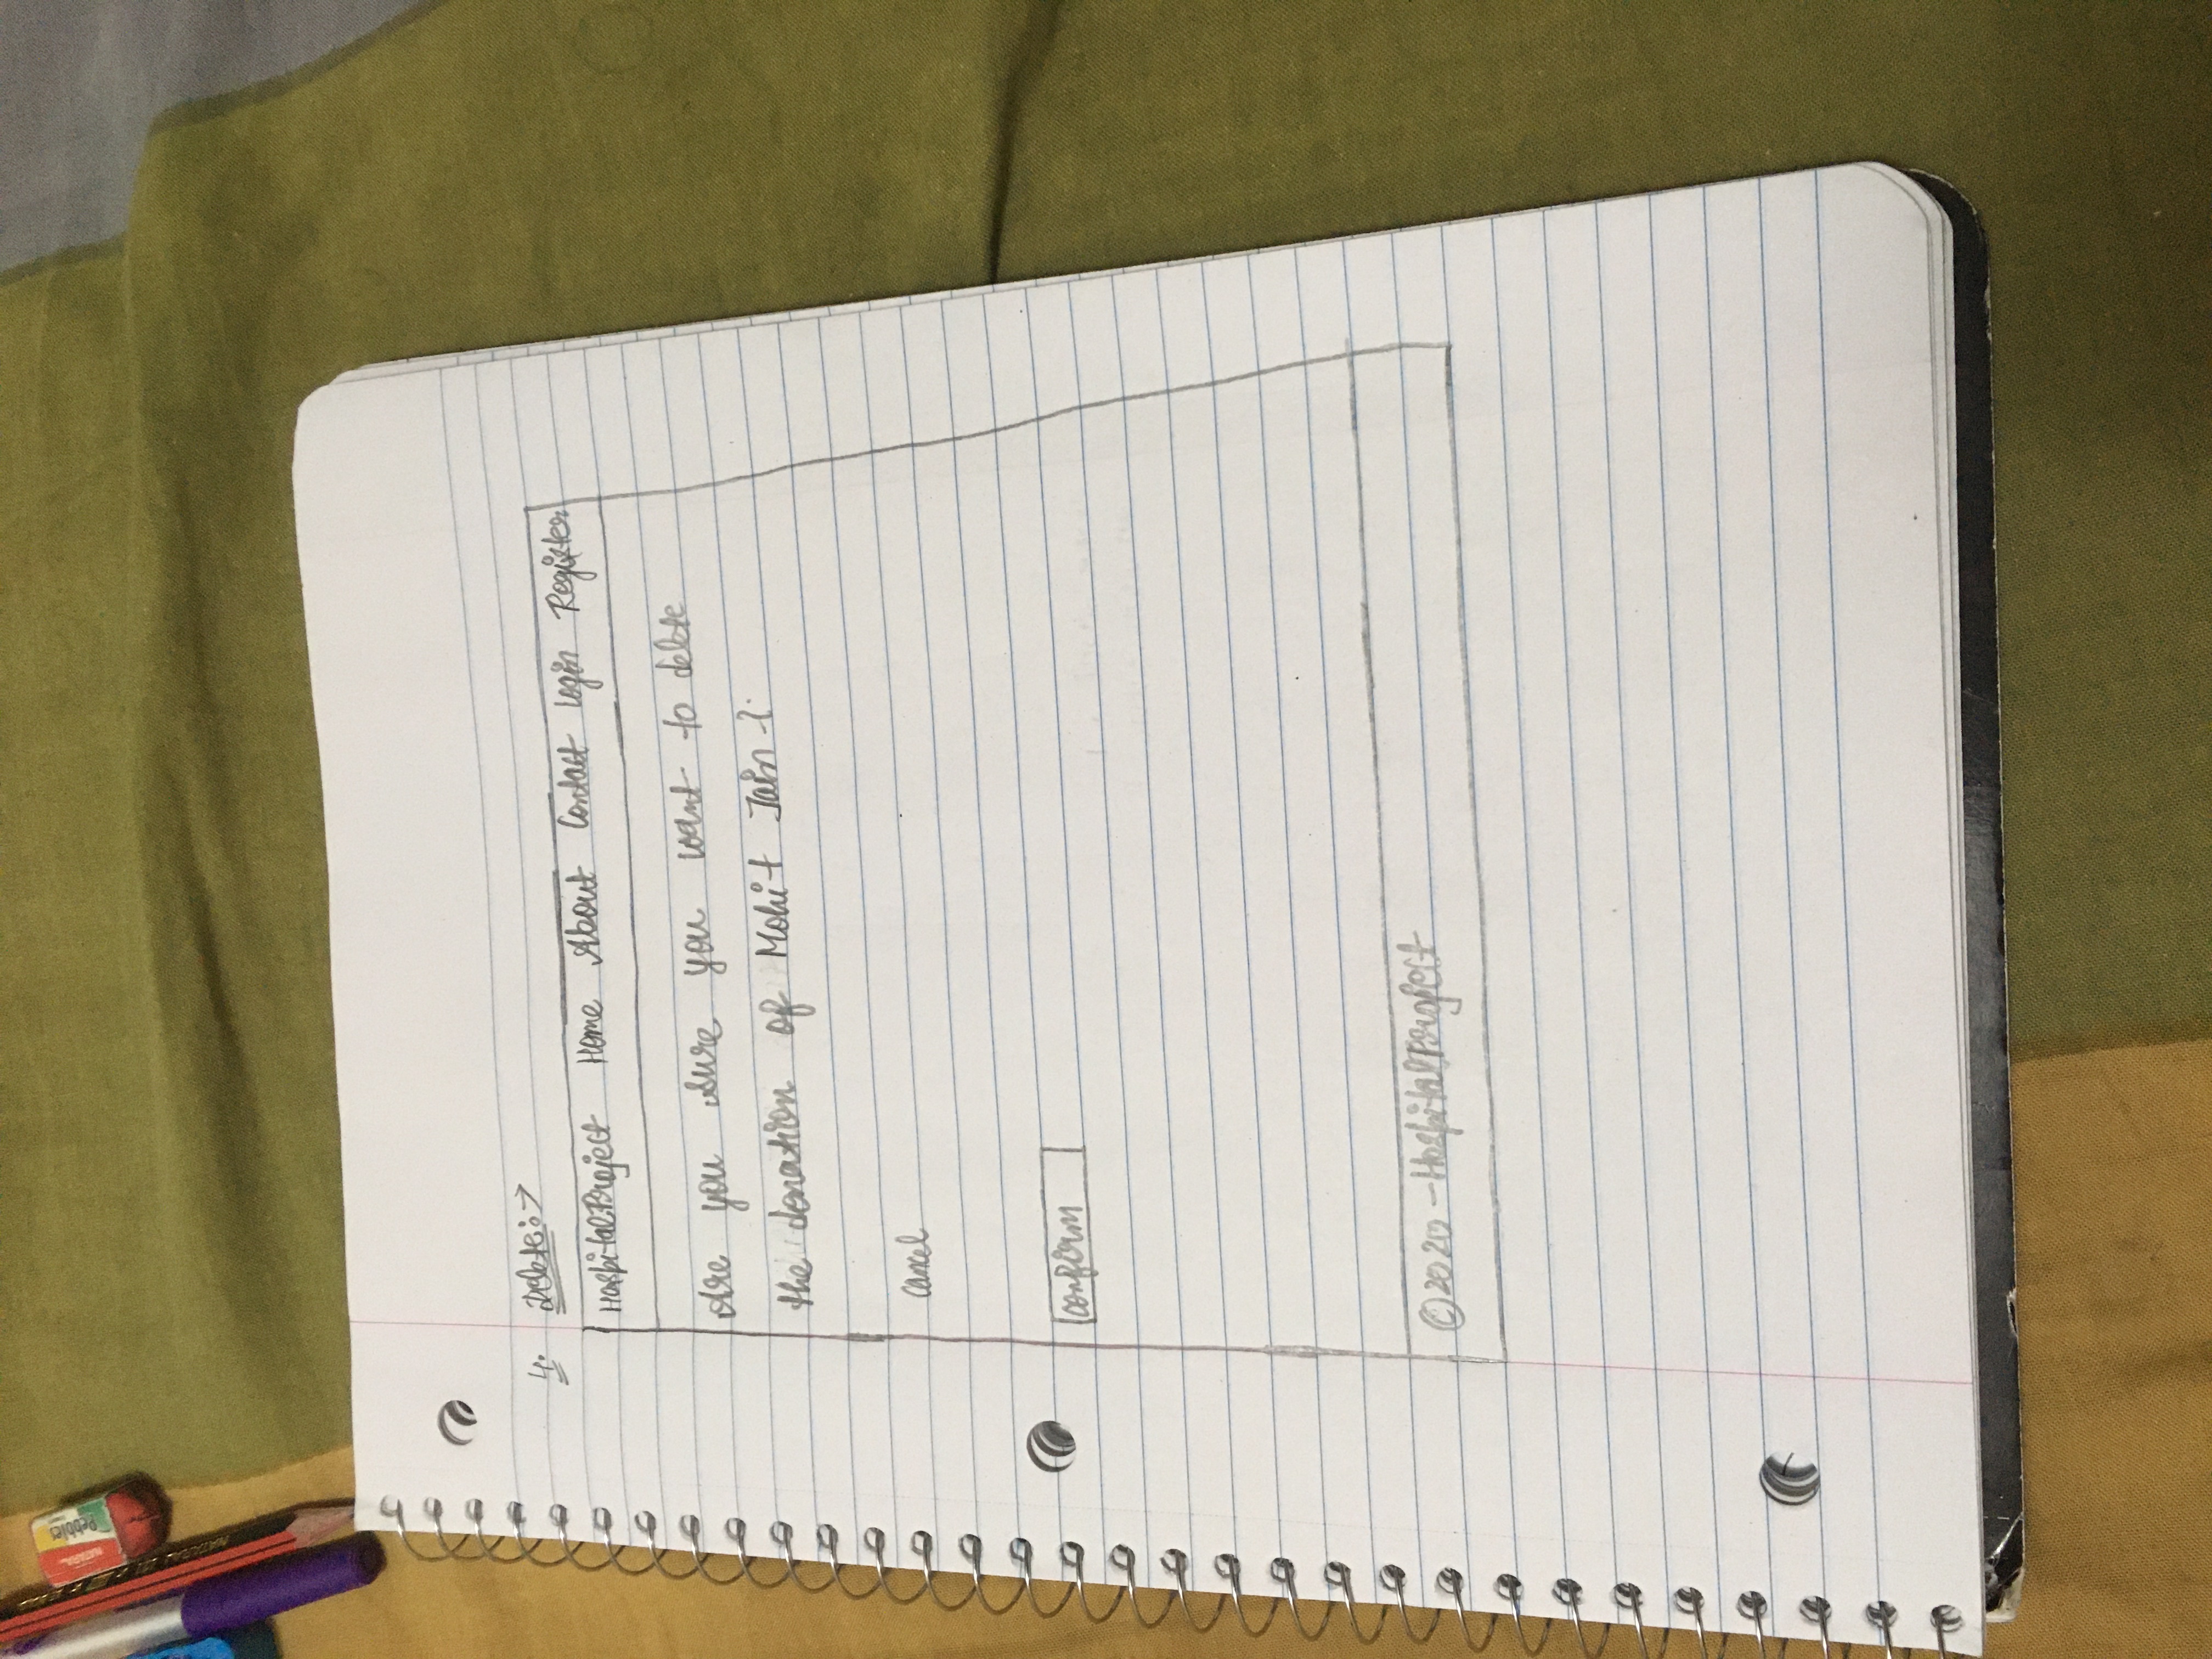 Pebbles
4. Delete:→
HospitalProject Home About Contact Login Register
Are you sure you want to delete
the donation of Mohit Jain ?
Cancel
Confirm
©2020 - HospitalProject